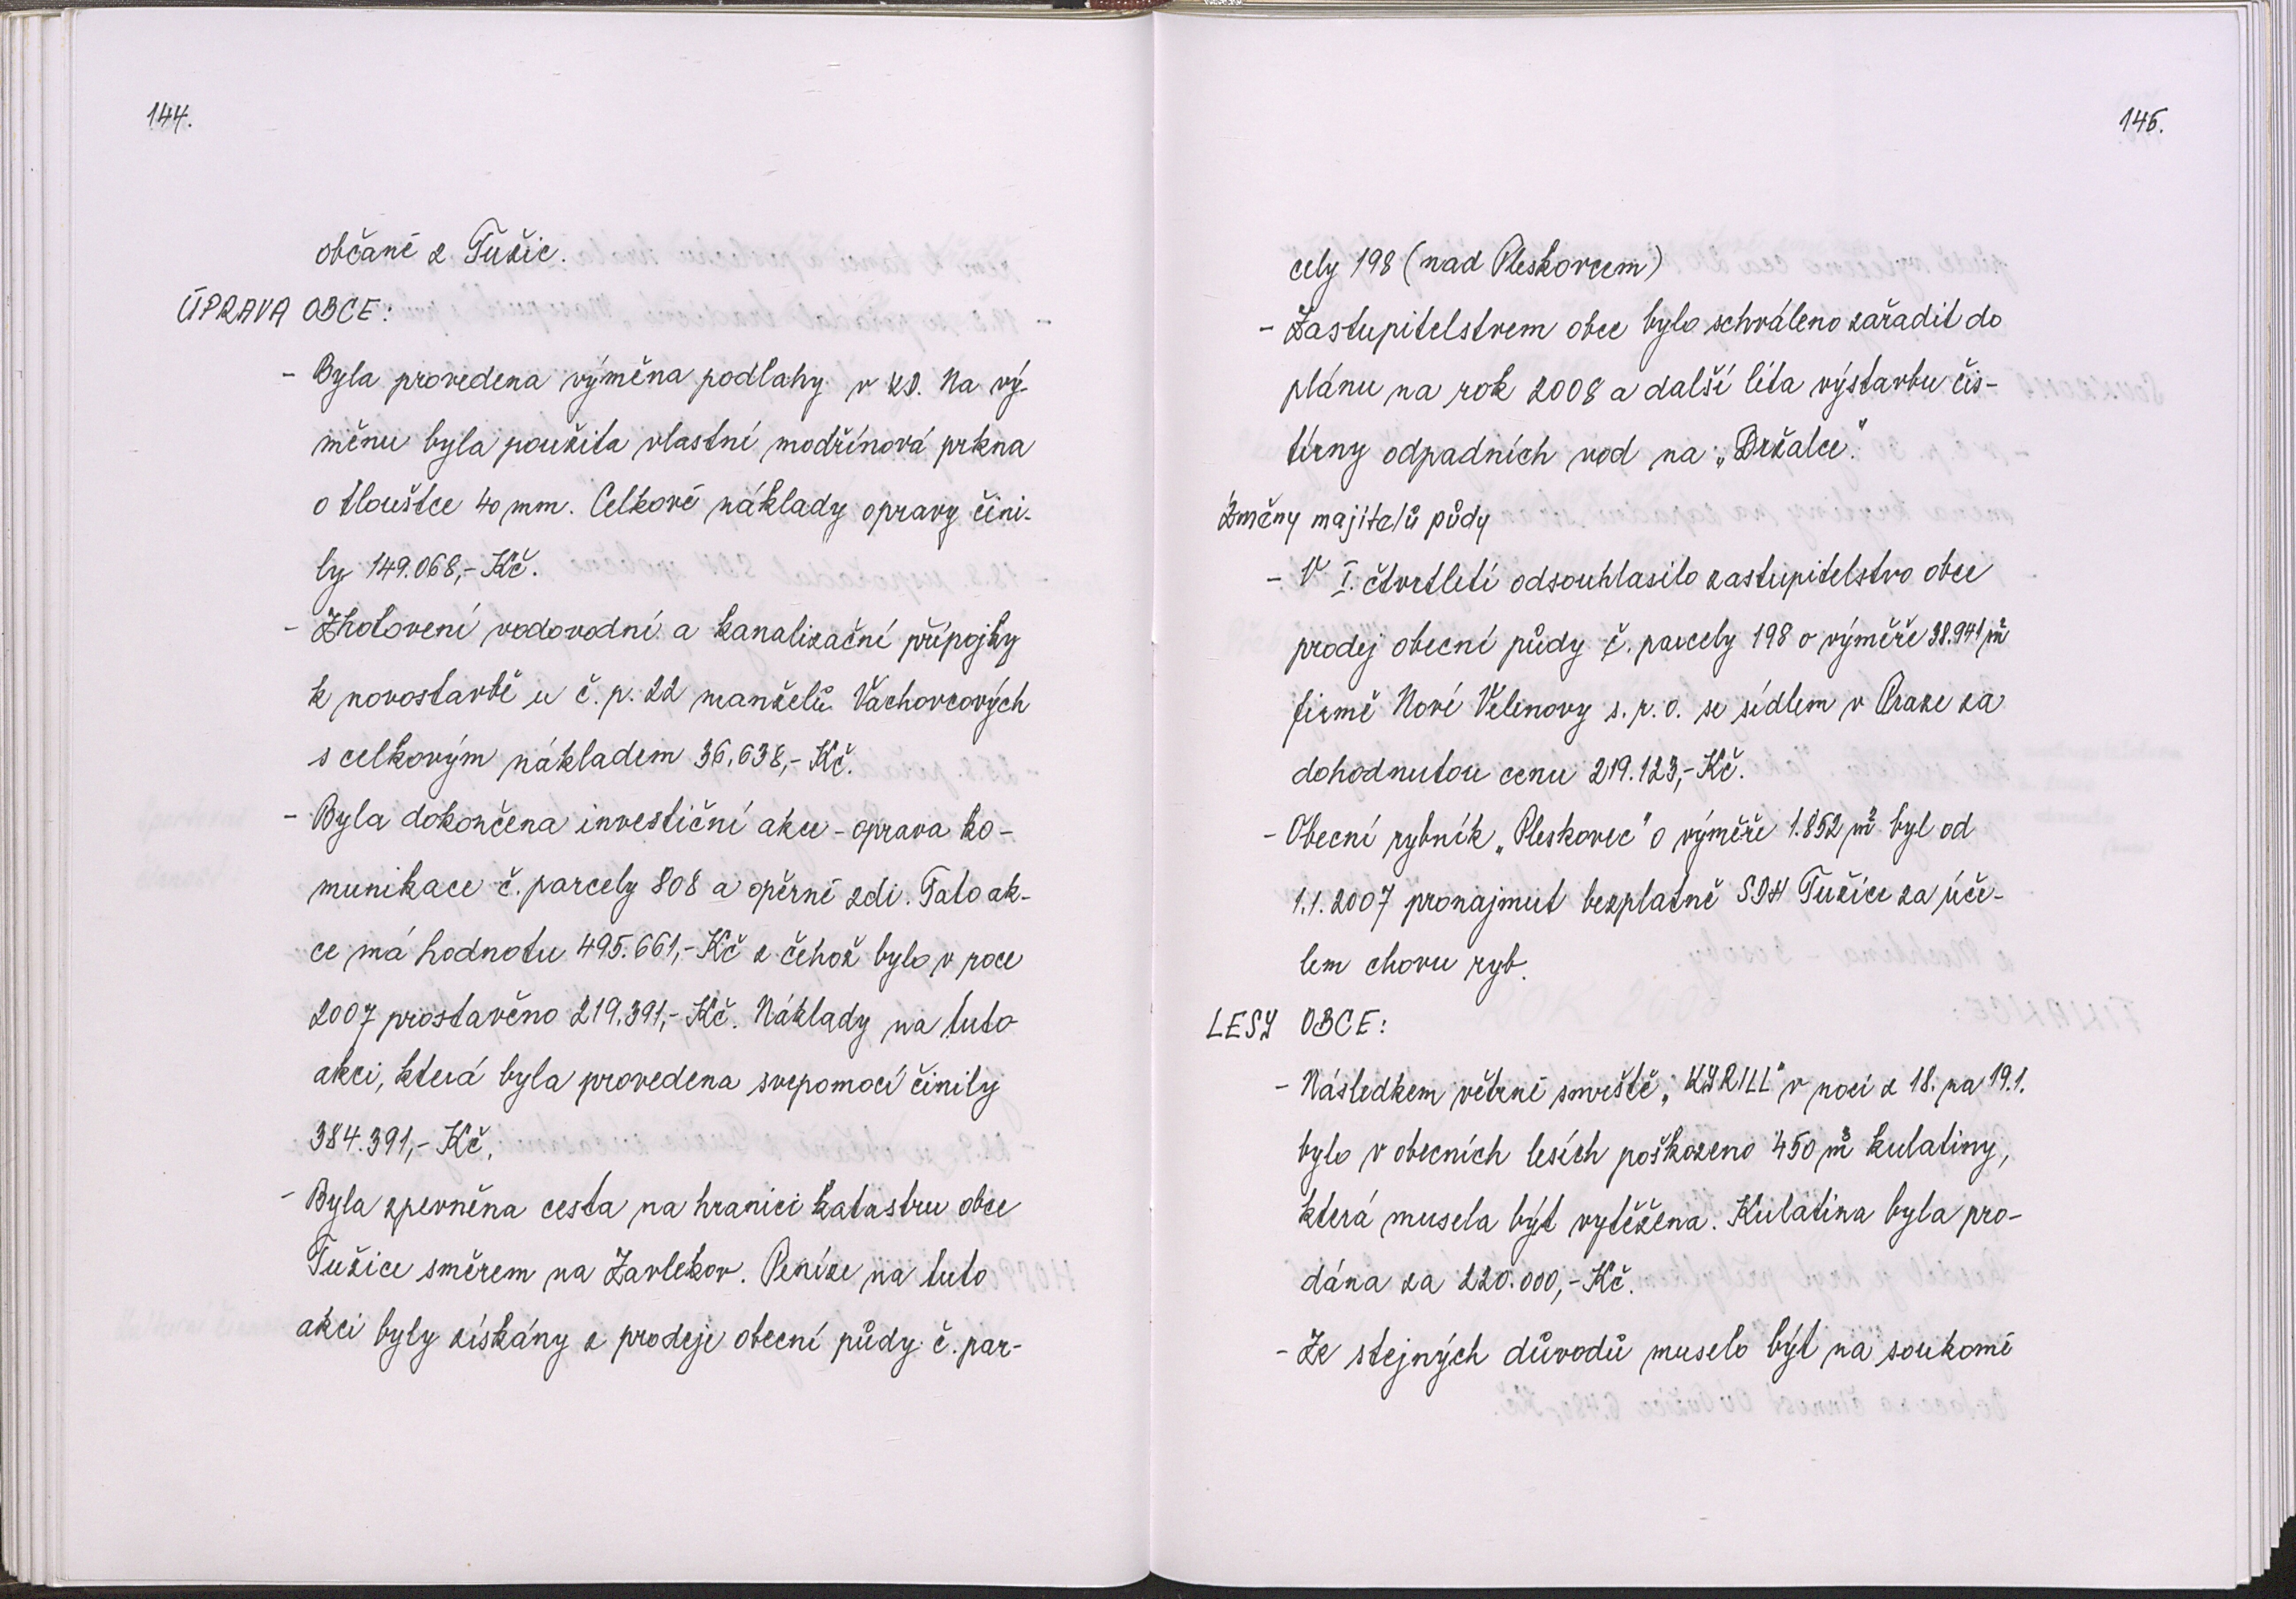 144.
občané z Tužic.
ÚPRAVA OBCE:
- Byla provedena výměna podlahy v KD. Na vý-
měnu byla použita vlastní modřínová prkna
o tloušťce 40 mm. Celkové náklady opravy čini-
ly 149.068,- Kč.
- Zhotovení vodovodní a kanalizační přípojky
k novostavbě u č.p. 22 manželů Váchovcových
s celkovým nákladem 36.638,- Kč.
- Byla dokončena investiční akce - oprava ko-
munikace č. parcely 808 a opěrné zdi. Tato ak-
ce má hodnotu 495.661,- Kč z čehož bylo v roce
2007 prostavěno 219.391,- Kč. Náklady na tuto
akci, která byla provedena svépomocí činily
384.391,- Kč.
- Byla zpevněna cesta na hranici katastru obce
Tužice směrem na Zavlekov. Peníze na tuto
akci byly získány z prodeje obecní půdy č. par-
145.
cely 198 (nad Pleskovcem)
- Zastupitelstvem obce bylo schváleno zařadit do
plánu na rok 2008 a další léta výstavbu čis-
tírny odpadních vod na „Držalce."
Změny majitelů půdy
- V I. čtvrtletí odsouhlasilo zastupitelstvo obce
prodej obecní půdy č. parcely 198 o výměře 38.941 m²
firmě Nové Velenovy s.r.o. se sídlem v Praze za
dohodnutou cenu 219.123,- Kč.
- Obecní rybník „Pleskovec" o výměře 1.852 m² byl od
1.1.2007 pronajmut bezplatně SDH Tužice za úče-
lem chovu ryb.
LESY OBCE:
- Následkem větrné smrště „KYRILL" v noci z 18. na 19.1.
bylo v obecních lesích poškozeno 450 m³ kulatiny,
která musela být vytěžena. Kulatina byla pro-
dána za 220.000,- Kč.
- Ze stejných důvodů muselo být na soukomé